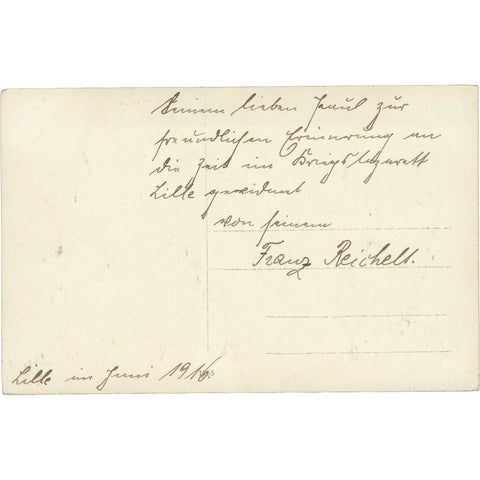 Seinem lieben Paul zur
freundlichen Erinnerung an
die Zeit im Kriegslazarett
Lille gewidmet
von seinem
Franz Reichelt.
Lille im Juni 1916.